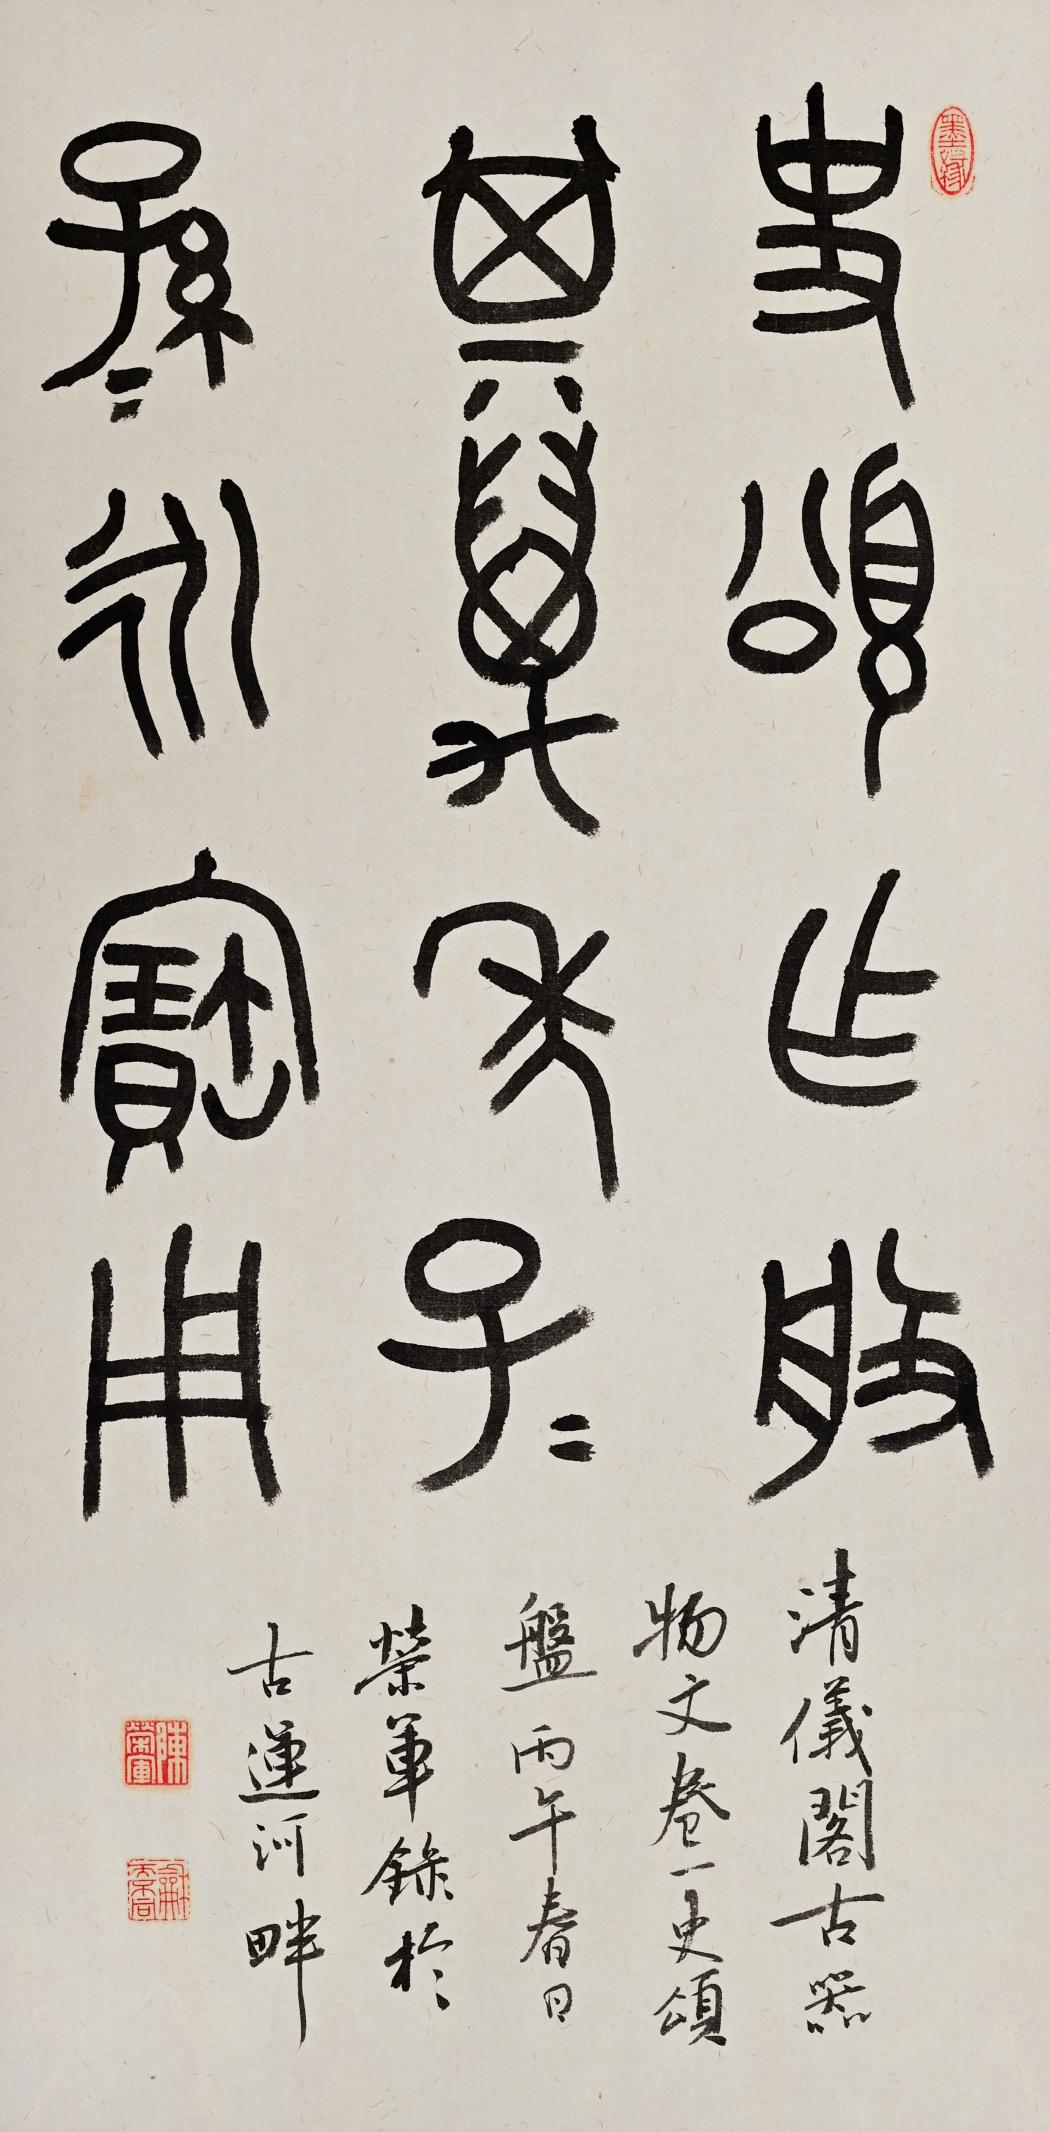 史頌乍般
其萬年子=
孫=永寶用
清儀閣古器
物文卷一史頌
盤丙午春日
榮軍錄於
古運河畔
墨緣
陳榮軍